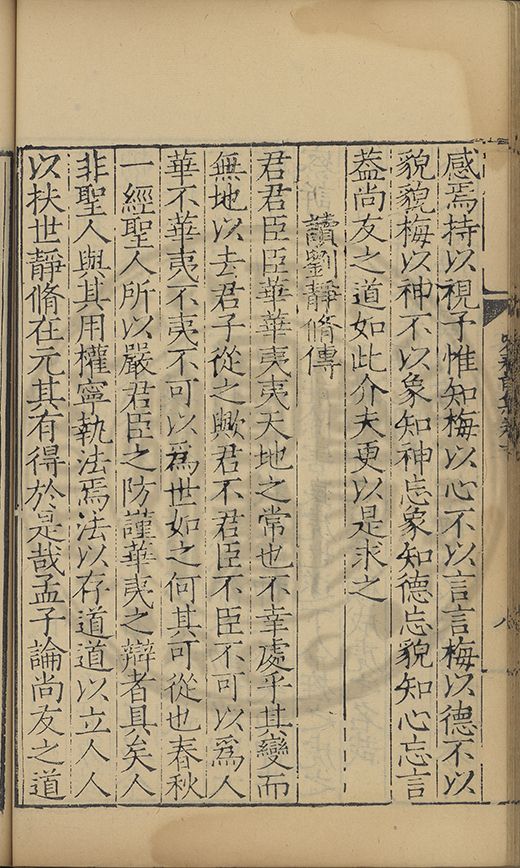 感焉持以視予惟知梅以心不以言言梅以德不以
貌貌梅以神不以象知神忘象知德忘貌知心忘言
葢尚友之道如此介夫更以是求之
讀劉靜脩傳
君君臣臣華華夷夷天地之常也不幸處乎其變而
無地以去君子從之歟君不君臣不臣不可以爲人
華不華夷不夷不可以爲世如之何其可從也春秋
一經聖人所以嚴君臣之防謹華夷之辯者具矣人
非聖人與其用權寧執法焉法以存道道以立人人
以扶世靜脩在元其有得於是哉孟子論尚友之道